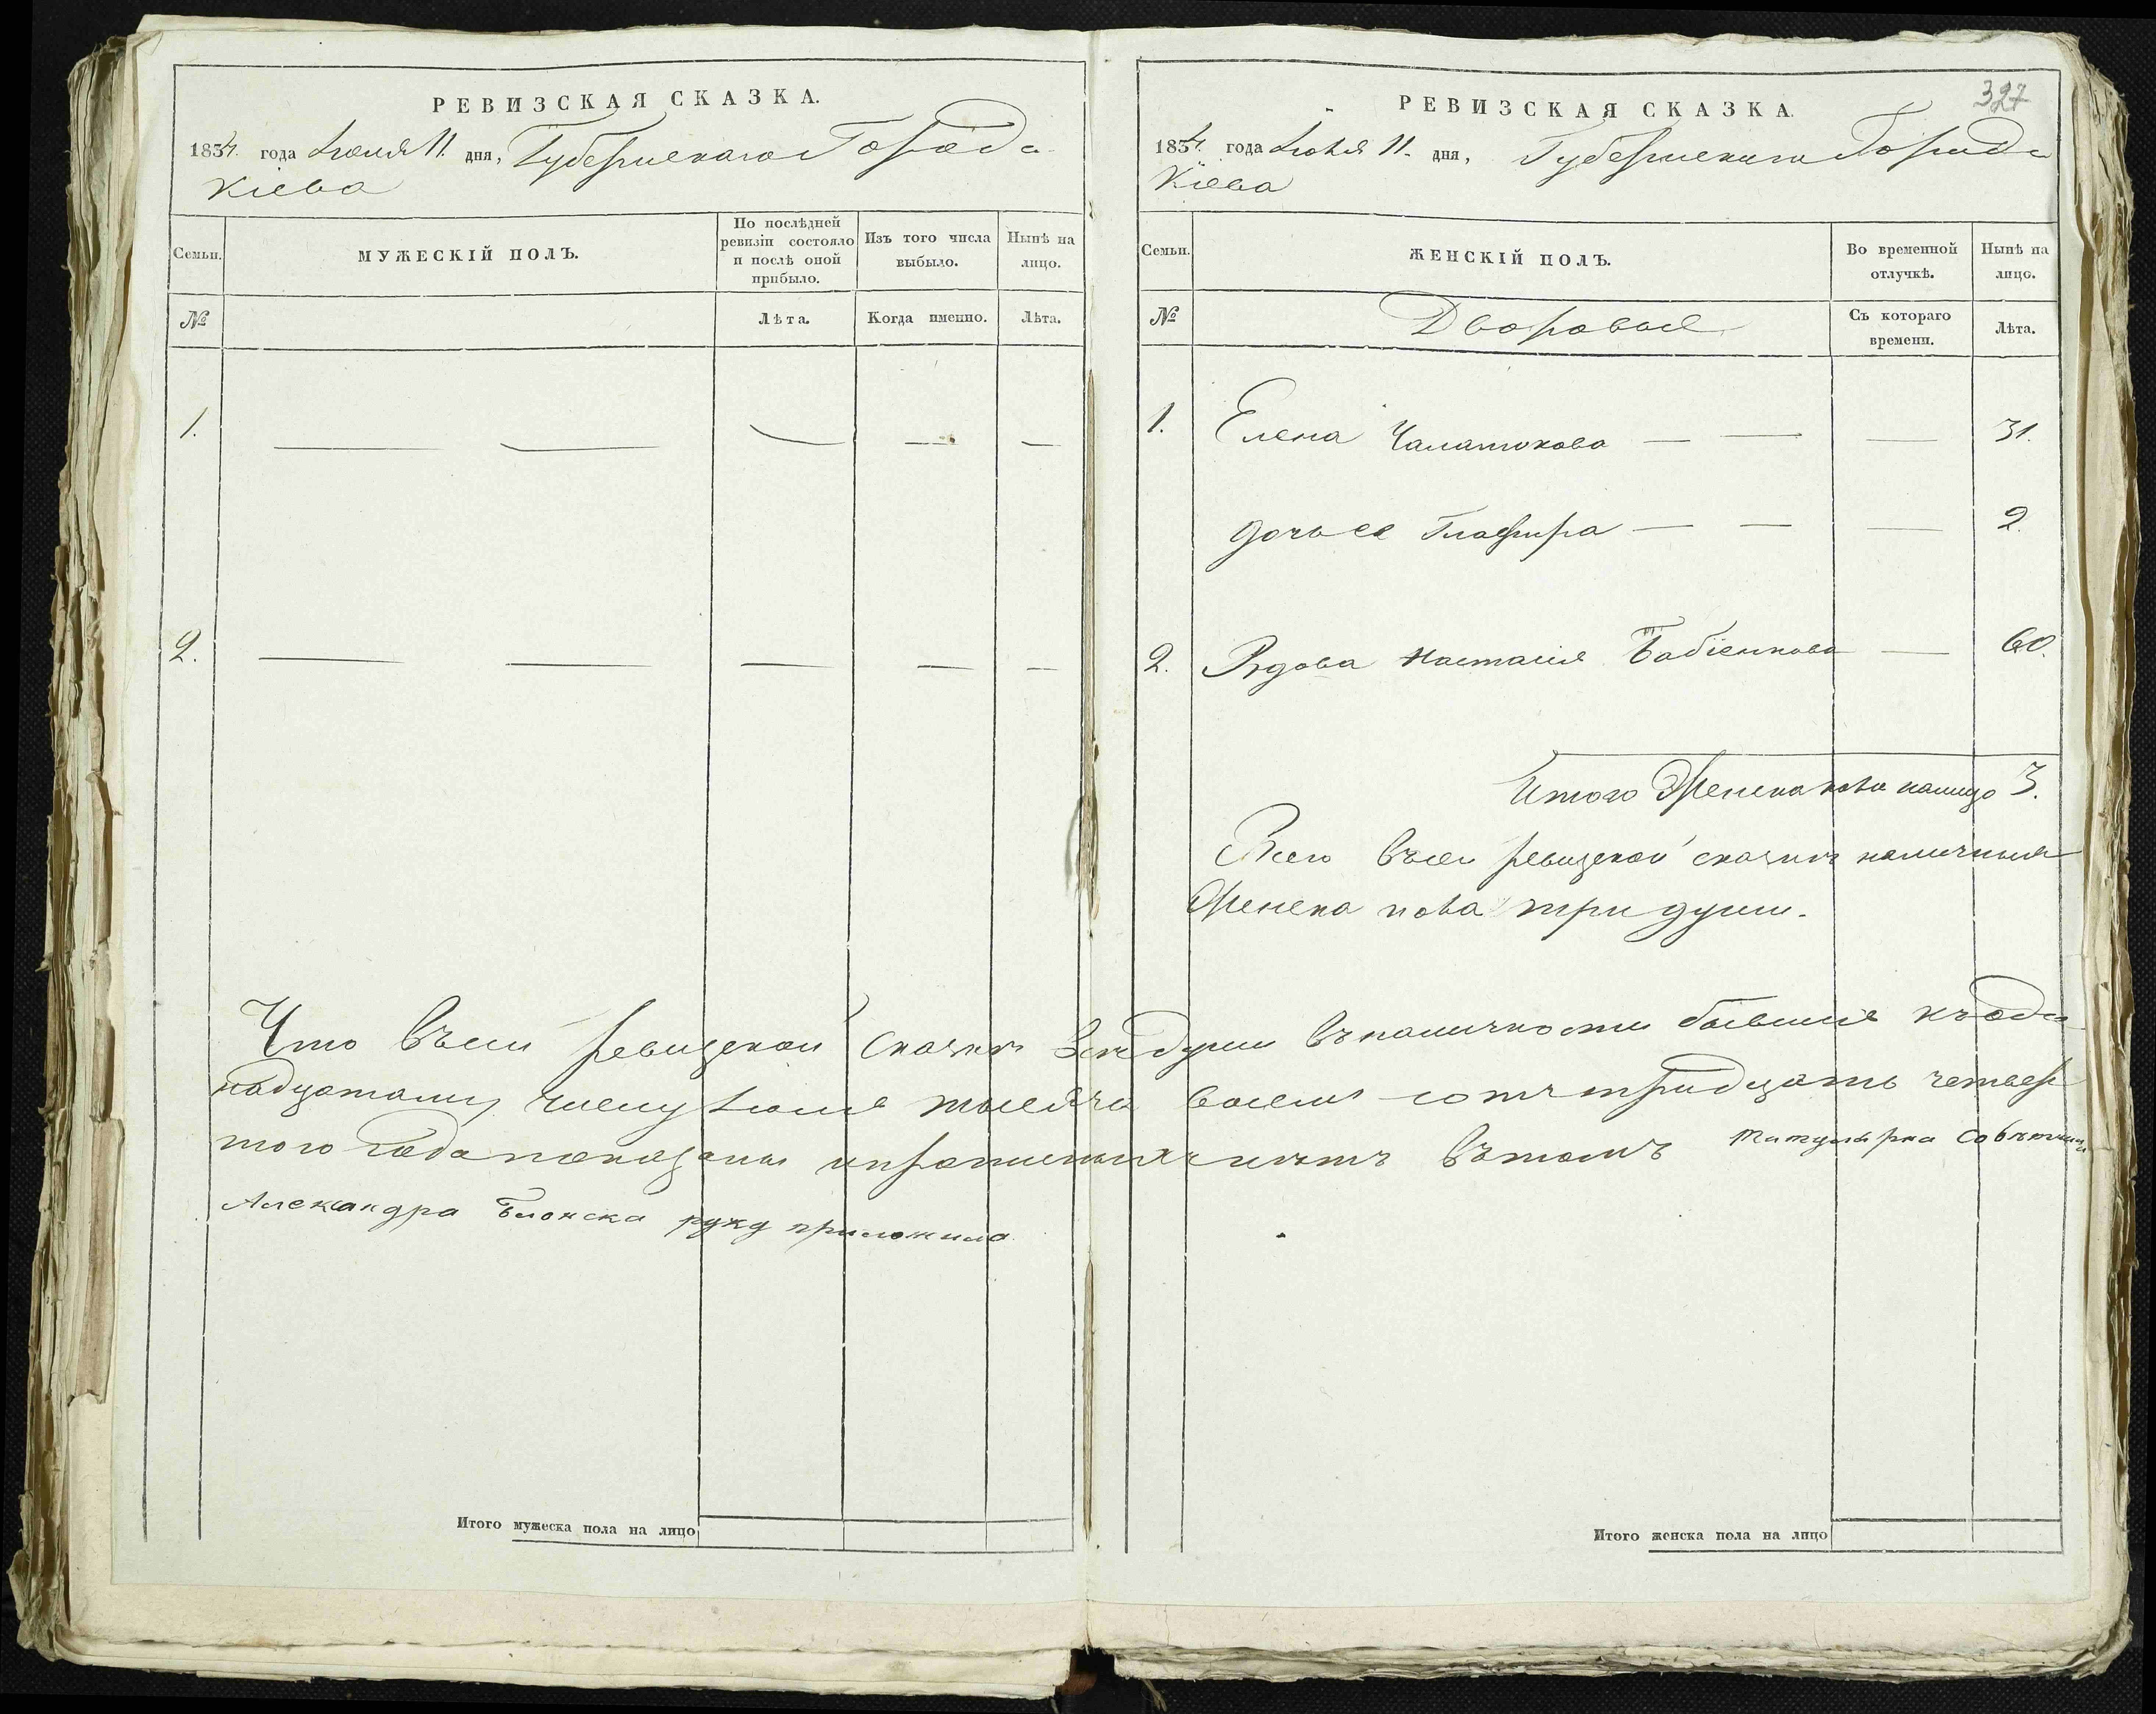 РЕВИЗСКАЯ СКАЗКА.
1834 года Іюля 11. дня, Губернскаго Города
Кіева
Семьи.
МУЖЕСКІЙ ПОЛЪ.
По послѣдней
ревизіи состояло
и послѣ оной
прибыло.
Изъ того числа
выбыло.
Нынѣ на
лицо.
№
Лѣта.
Когда именно.
Лѣта.
1.
2.
327
РЕВИЗСКАЯ СКАЗКА.
1834 года Іюля 11. дня, Губернскаго Города
Кіева
Семьи.
ЖЕНСКІЙ ПОЛЪ.
Во временной
отлучкѣ.
Нынѣ на
лицо.
№
Дворовые
Съ котораго
времени.
Лѣта.
1. Елена 31.
дочь ее Глафира 2.
2. Вдова Настасія Бабіенкова 60.
Итого Женска пола налицо 3.
Всего въсей ревизской сказкѣ наличныхъ
Женска пола три души.
Что въсей ревизской сказкѣ всѣ души въналичности бывшие къоди
надцатому числу Іюля тысяча восемъ сотъ тридцать четвер
того Года показаны ипрописныхъ нѣтъ вътомъ титулярна совѣтница
Александра Блонска руку приложила
Итого мужеска пола на лицо
Итого женска пола на лицо